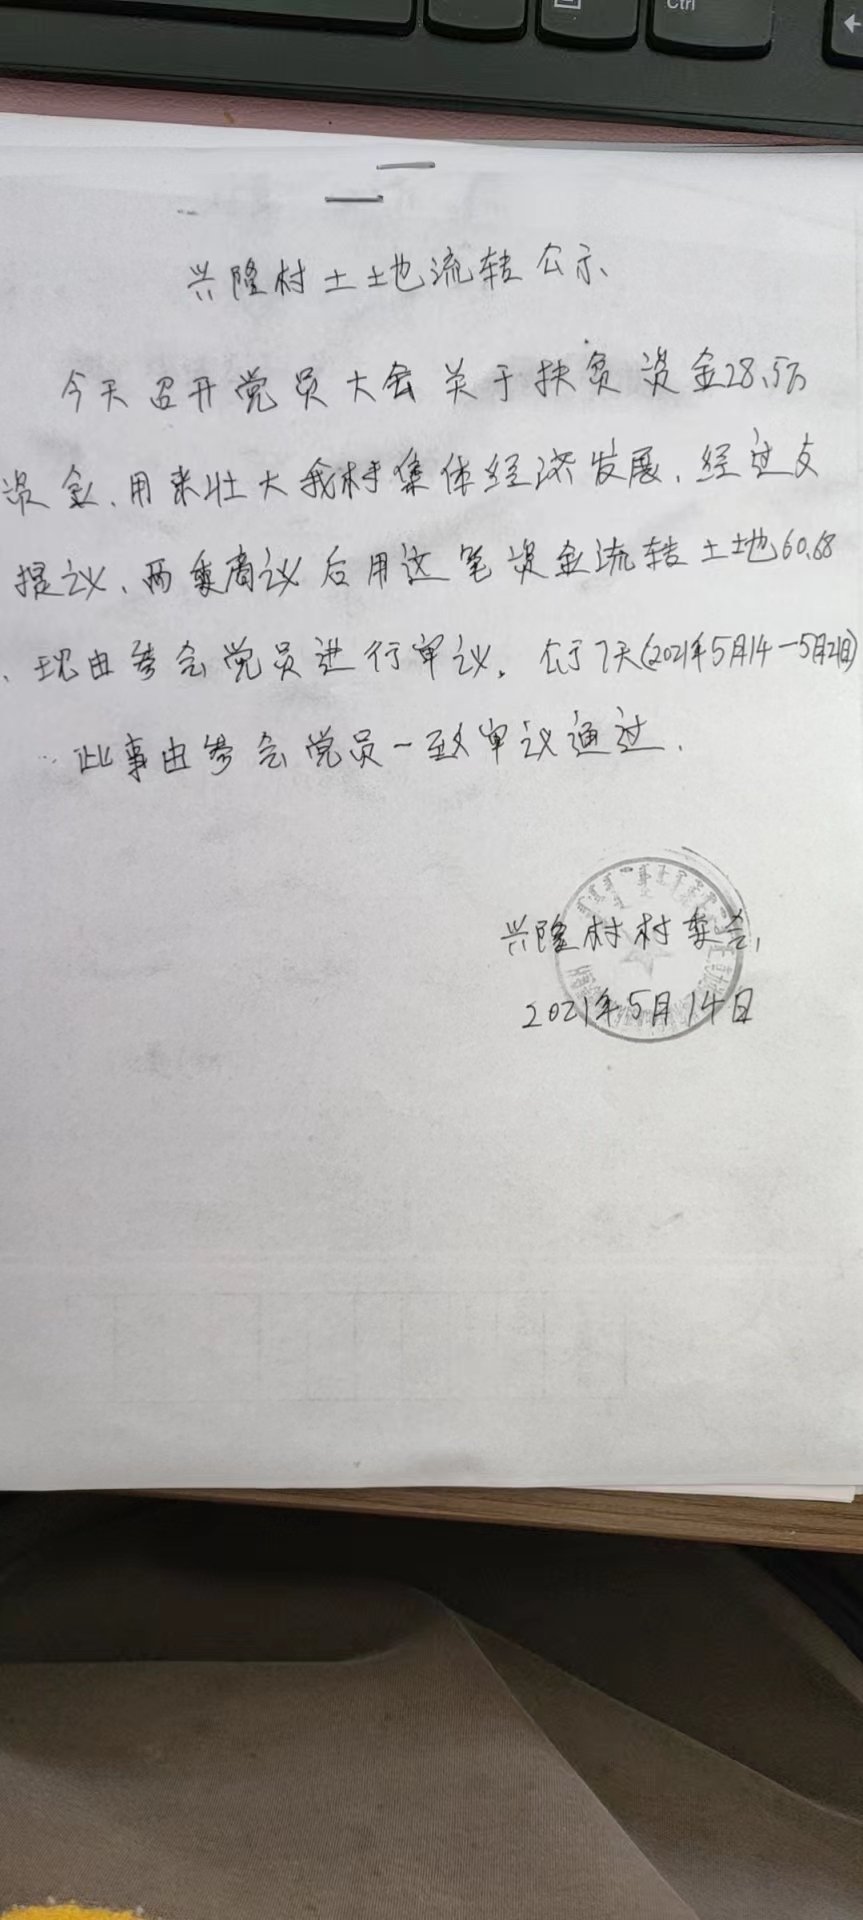 Ctrl
兴隆村土土地流转公示
今天召开党员大会关于扶贫资金28.5万
资金、用来壮大我村集体经济发展、经过支
提议、两委商议后用这笔资金流转土地60.68
、现由参会党员进行审议。公示7天(2021年5月14-5月21日)
此事由参会党员一致审议通过.
兴隆村村委会,
2021年5月14日